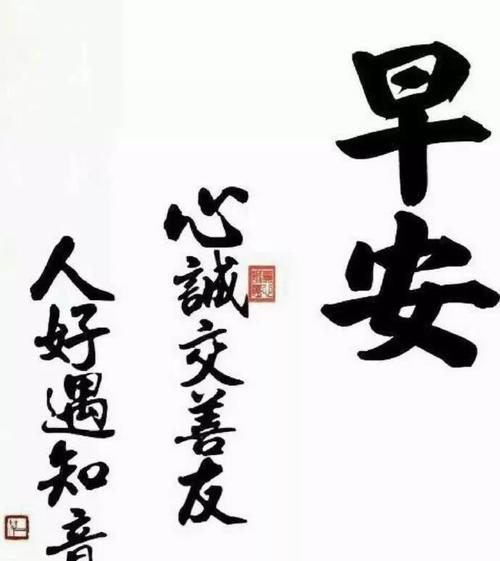 早安
心誠交善友
人好遇知音